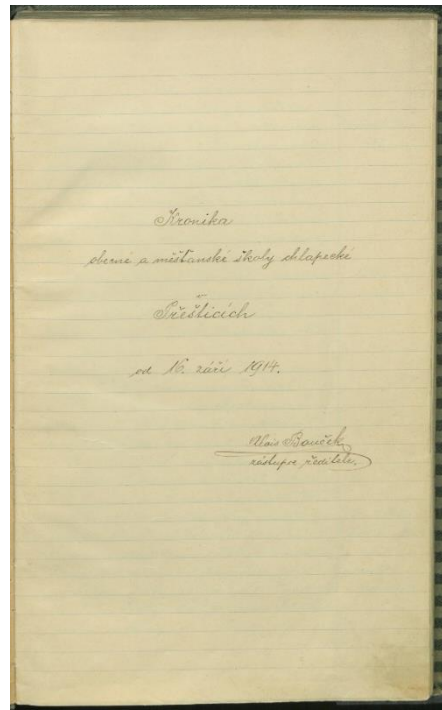 Kronika
obecné a měšťanské školy chlapecké
v
Přešticích
od 16. září 1914.
Alois Bouček,
zástupce ředitele.